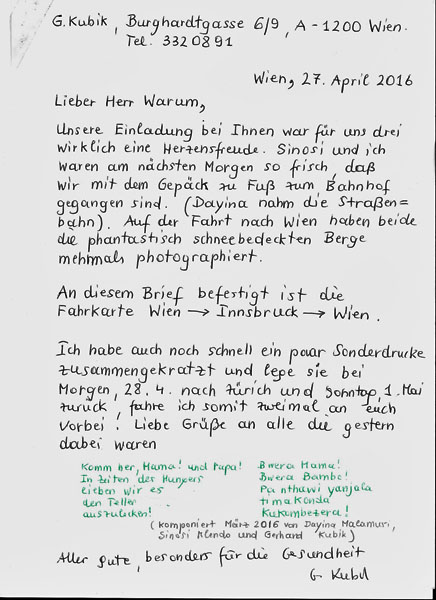 G. Kubik, Burghardtgasse 6/9, A - 1200 Wien.
Tel. 3320891
Wien, 27. April 2016
Lieber Herr Warum,
Unsere Einladung bei Ihnen war für uns drei
wirklich eine Herzensfreude. Sinosi und ich
waren am nächsten Morgen so frisch, daß
wir mit dem Gepäck zu Fuß zum Bahnhof
gegangen sind. (Dayina nahm die Straßen=
bahn). Auf der Fahrt nach Wien haben beide
die phantastisch schneebedeckten Berge
mehmals photographiert.
An diesem Brief befestigt ist die
Fahrkarte Wien → Innsbruck → Wien.
Ich habe auch noch schnell ein paar Sonderdrucke
zusammengekratzt und lege sie bei
Morgen, 28. 4. nach Zürich und Sonntag, 1. Mai
zurück, fahre ich somit zweimal an euch
vorbei! Liebe Grüße an alle die gestern
dabei waren
Komm her, Mama! und Papa!
In Zeiten des Hungers
lieben wir es
den Teller
auszulecken!
Bwera Mama!
Bwera Bambo!
Pa nthawi yanjala
timakonda
Kukombezera!
(komponiert März 2016 von Dayina Malamusi,
Sinosi Mlendo und Gerhard Kubik)
Alles gute, besonders für die Gesundheit
G Kubik